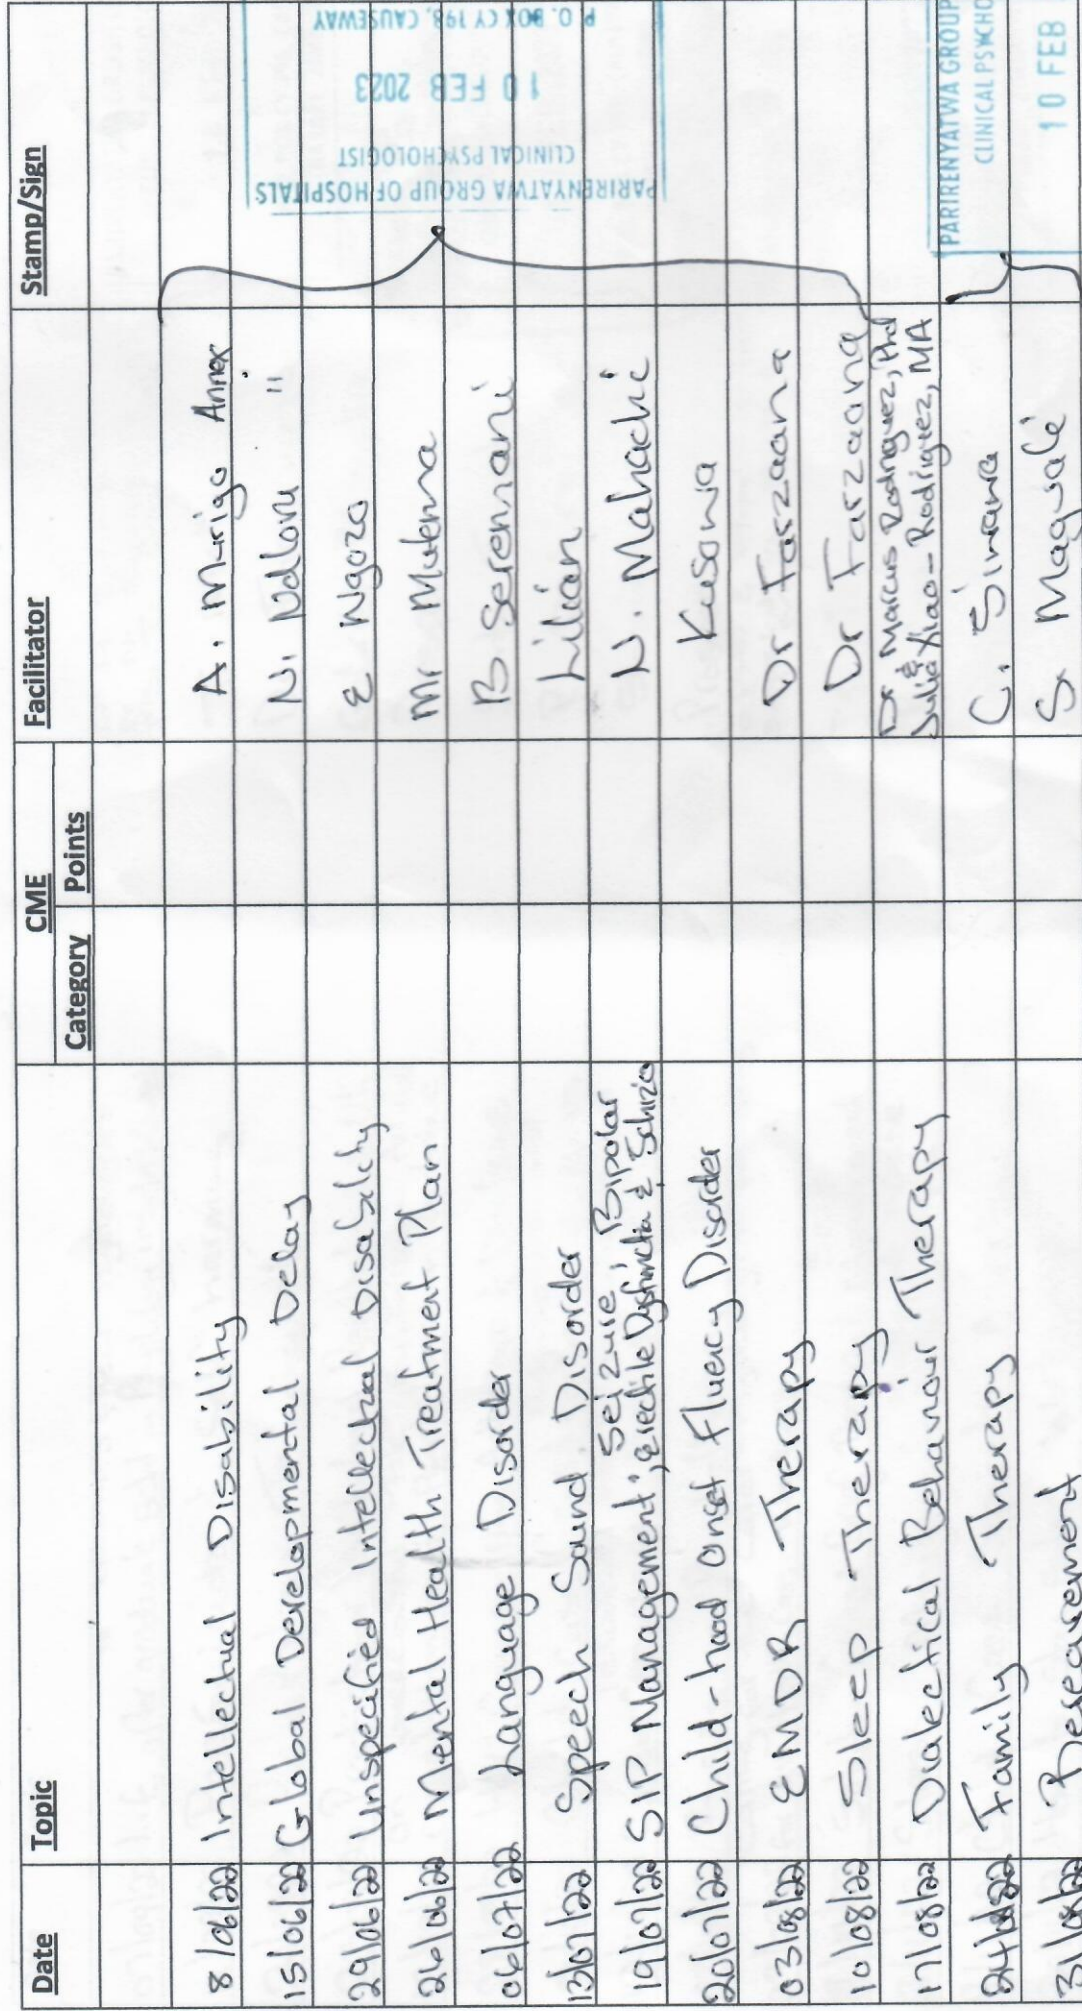 Date Topic CME Facilitator Stamp/Sign
Category Points
8/06/22 Intellectual Disability A. Murigo Annex
15/06/22 Global Developmental Delay N. Ndlovu "
29/06/22 Unspecified Intellectual Disability E Ngozo
26/06/22 Mental Health Treatment Plan Mr Mutema
06/07/22 Language Disorder B Seremani
13/07/22 Speech Sound Disorder Lilian
19/07/22 SIP Management; Seizure, Bipolar
erectile Dysfunction & Schizo N. Mahachi
20/07/22 Child-hood Onset Fluency Disorder Kusena
03/08/22 EMDR Therapy Dr Farzaana
10/08/22 Sleep Therapy Dr Farzaana
17/08/22 Dialectical Behaviour Therapy Dr Marcus Rodriguez, PhD
& Julia Xiao-Rodriguez, MA
24/08/22 Family Therapy C.
31/08/22 Bereavement S. Magwale
PARIRENYATWA GROUP OF HOSPITALS
CLINICAL PSYCHOLOGIST
10 FEB 2023
P. O. BOX CY 198, CAUSEWAY
PARIRENYATWA GROUP
CLINICAL PSYCHO
10 FEB